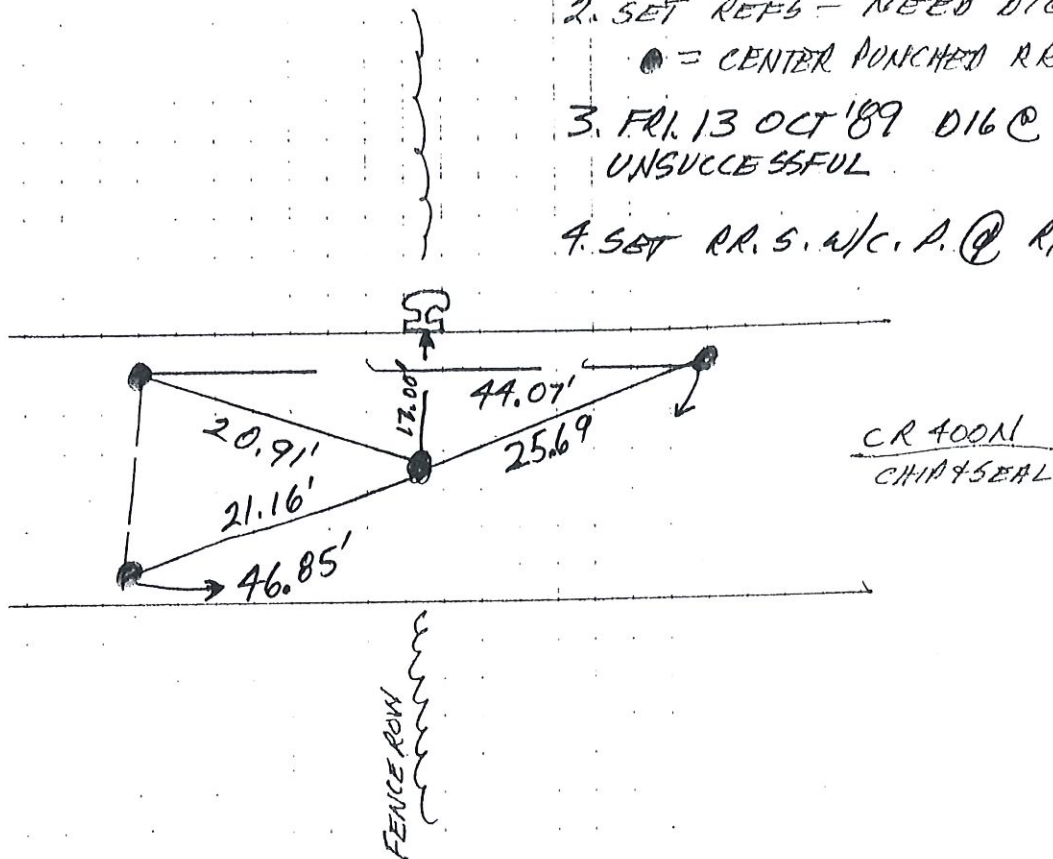 2. SET REFS - NEED DIG
● = CENTER PUNCHED RR
3. FRI. 13 OCT '89 DIG @
UNSUCCESSFUL
4. SET RR. S. W/C. P. @
44.07'
20.91'
25.69
CR 400N
CHIP & SEAL
21.16'
46.85'
FENCE ROW